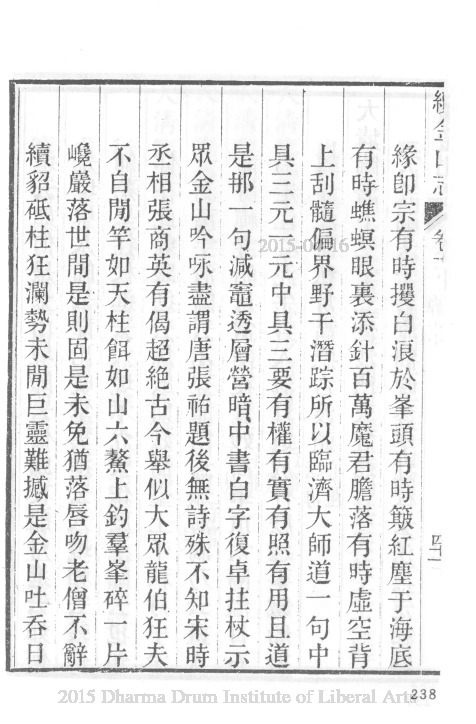 續金山志 卷十
緣卽宗有時攫白浪於峯頭有時簸紅塵于海底
有時蟭螟眼裏添針百萬魔君膽落有時虛空背
上刮髓偏界野干潛踪所以臨濟大師道一句中
具三元一元中具三要有權有實有照有用且道
是那一句減竈透層營暗中書白字復卓拄杖示
眾金山吟咏盡謂唐張祐題後無詩殊不知宋時
丞相張商英有偈超絕古今舉似大眾龍伯狂夫
不自閒竿如天柱餌如山六鰲上釣羣峯碎一片
巉巖落世間是則固是未免猶落唇吻老僧不辭
續貂砥柱狂瀾勢未閒巨靈難撼是金山吐吞日
238
2015 Dharma Drum Institute of Liberal Arts